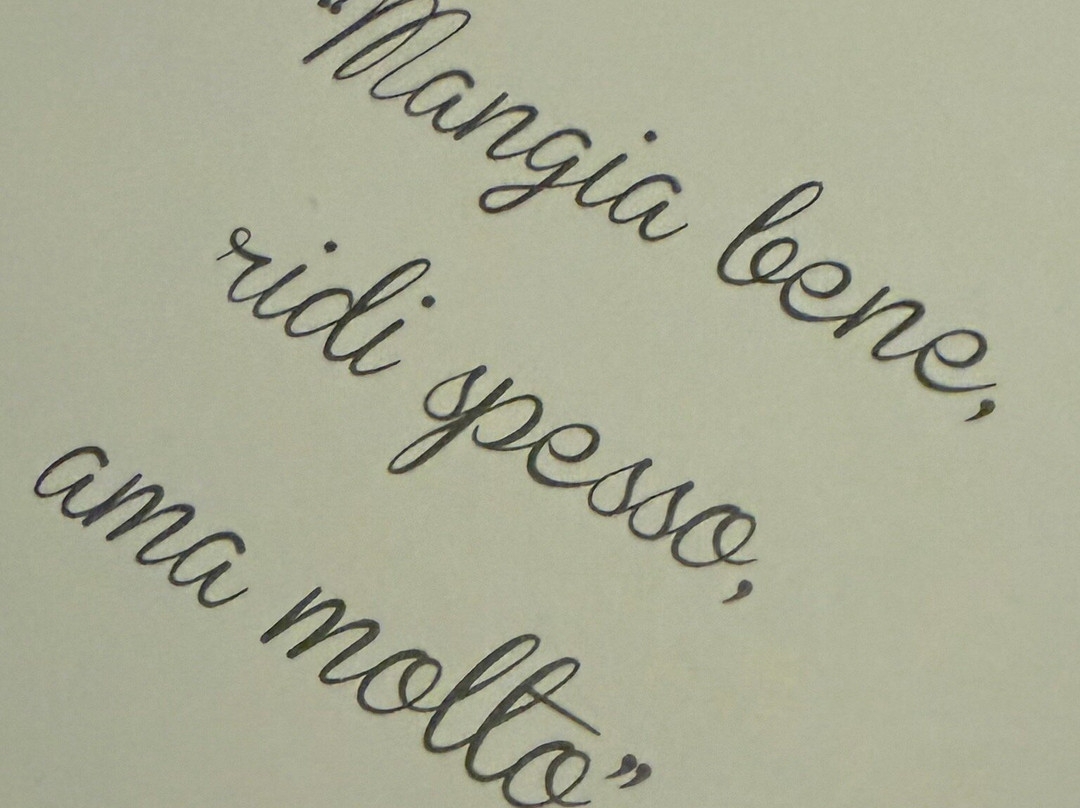 "Mangia bene,
ridi spesso,
ama molto"